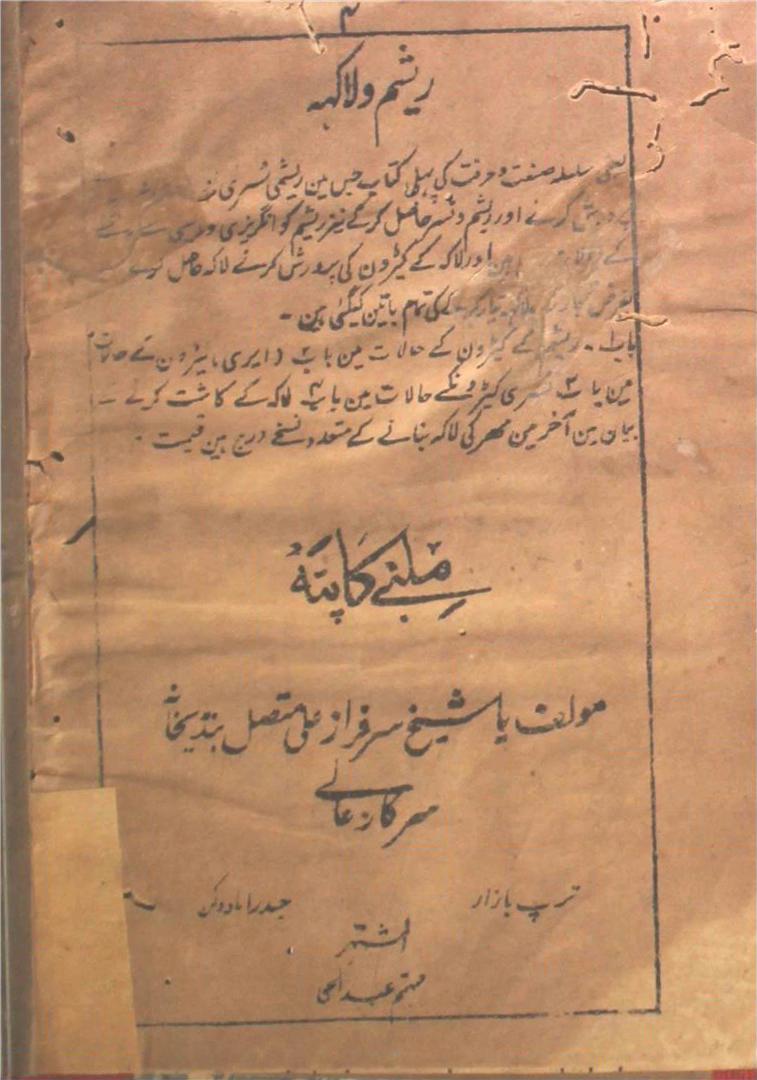 ۴
ریشم ولاکہہ
یعنی سلسلہ صنعت وحرفت کی پہلی کتاب جس مین ریشمی ٹسری
پرورش کرنے اور ریشم وٹسر حاصل کرکے نیز ریشم کو انگریزی ودیسی
کے اور لاکہہ کے کیڑون کی پرورش کرنے لاکہہ حاصل کرنے
کی تمام باتین لکہی گئی ہین ۔
باب ۱ ۔ ریشم کے کیڑون کے حالات مین باب ۲ (ایری) کیڑون کے حالات
مین باب ۳ ٹسری کیڑونکے حالات مین باب ۴ لاکہہ کے کاشت کرنے کے
بیان ہین آخر مین مہر کی لاکہہ بنانے کے متعدد نسخے درج ہین قیمت ۔
ملنے کا پتہ
مولف یا شیخ سرفراز علی متصل بندیخانہ
سرکار عالے
ترپ بازار حیدرآباد دکن
المشتہر
مہتمم عبدالحی